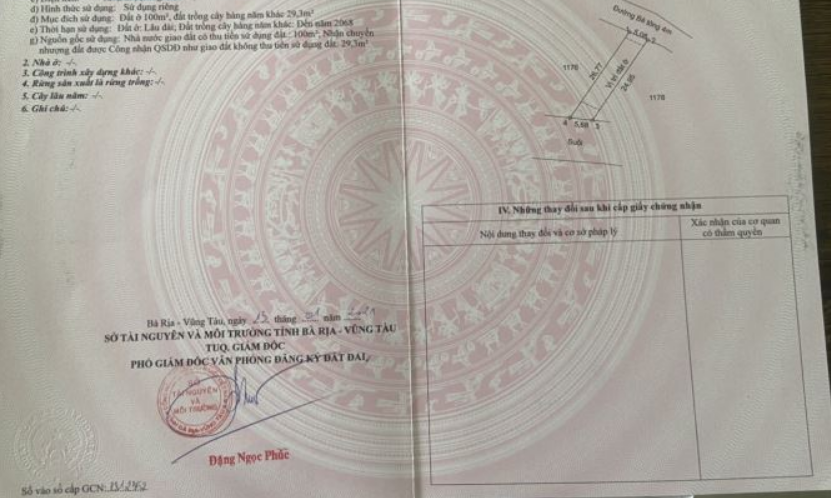 d) Hình thức sử dụng: Sử dụng riêng
đ) Mục đích sử dụng: Đất ở 100m², đất trồng cây hàng năm khác 29,3m²
e) Thời hạn sử dụng: Đất ở: Lâu dài; Đất trồng cây hàng năm khác: Đến năm 2068
g) Nguồn gốc sử dụng: Nhà nước giao đất có thu tiền sử dụng đất : 100m², Nhận chuyển
nhượng đất được Công nhận QSDĐ như giao đất không thu tiền sử dụng đất: 29,3m²
2. Nhà ở: -/-
3. Công trình xây dựng khác: -/-
4. Rừng sản xuất là rừng trồng: -/-
5. Cây lâu năm: -/-
6. Ghi chú: -/-
Bà Rịa - Vũng Tàu, ngày 15 tháng 01 năm 2021
SỞ TÀI NGUYÊN VÀ MÔI TRƯỜNG TỈNH BÀ RỊA - VŨNG TÀU
TUQ. GIÁM ĐỐC
PHÓ GIÁM ĐỐC VĂN PHÒNG ĐĂNG KÝ ĐẤT ĐAI
SỞ
TÀI NGUYÊN
VÀ
MÔI TRƯỜNG
Đặng Ngọc Phúc
Số vào sổ cấp GCN:
Đường Bê tông 4m
1176
26,77
Vị trí đất ở
24,95
1178
4 5,68 3
Suối
IV. Những thay đổi sau khi cấp giấy chứng nhận
Nội dung thay đổi và cơ sở pháp lý
Xác nhận của cơ quan
có thẩm quyền